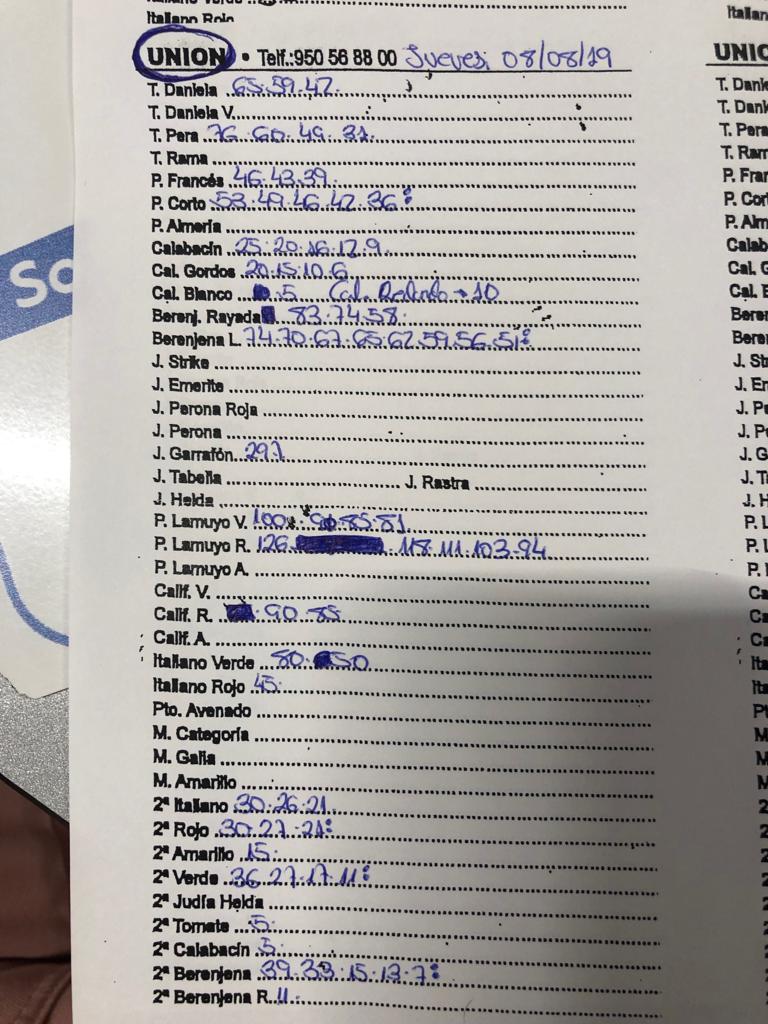 Italiano Rojo
UNION • Telf.:950 56 88 00 Jueves: 08/08/19
T. Daniela 65.59.47.
T. Daniela V.
T. Pera 76.60.49.31.
T. Rama
P. Francés 46.43.39.
P. Corto 53.49.46.42.36:
P. Almería
Calabacín 25.20.16.12.9.
Cal. Gordos 20.15.10.6
Cal. Blanco 5 Cal. Redondo → 10
Berenj. Rayada 83.74.58.
Berenjena L. 74.70.67.65.62.59.56.51:
J. Strike
J. Emerite
J. Perona Roja
J. Perona
J. Garrafón 297
J. Tabella J. Rastra
J. Helda
P. Lamuyo V. 100. 90.85.81.
P. Lamuyo R. 126. 118.111.103.94
P. Lamuyo A.
Calif. V.
Calif. R. 90.85
Calif. A.
Italiano Verde 80. 50
Italiano Rojo 45.
Pto. Avenado
M. Categoría
M. Galia
M. Amarillo
2ª Italiano 30.26.21.
2ª Rojo 30.27.21:
2ª Amarillo 15.
2ª Verde 36.27.17.11:
2ª Judía Helda
2ª Tomate 5.
2ª Calabacín 5.
2ª Berenjena 39.33.15.13.7:
2ª Berenjena R. 11.
So
Italian
UNIO
T. Dani
T. Dani
T. Pera
T. Ram
P. Fran
P. Cor
P. Alm
Calab
Cal. G
Cal. B
Beren
Bere
J. St
J. Er
J. Pe
J. P
J. G
J. T
J. H
P. L
P. L
P. 
Ca
Ca
Ca
Ita
Ita
Pt
M
M
M
2
2
2
2
2